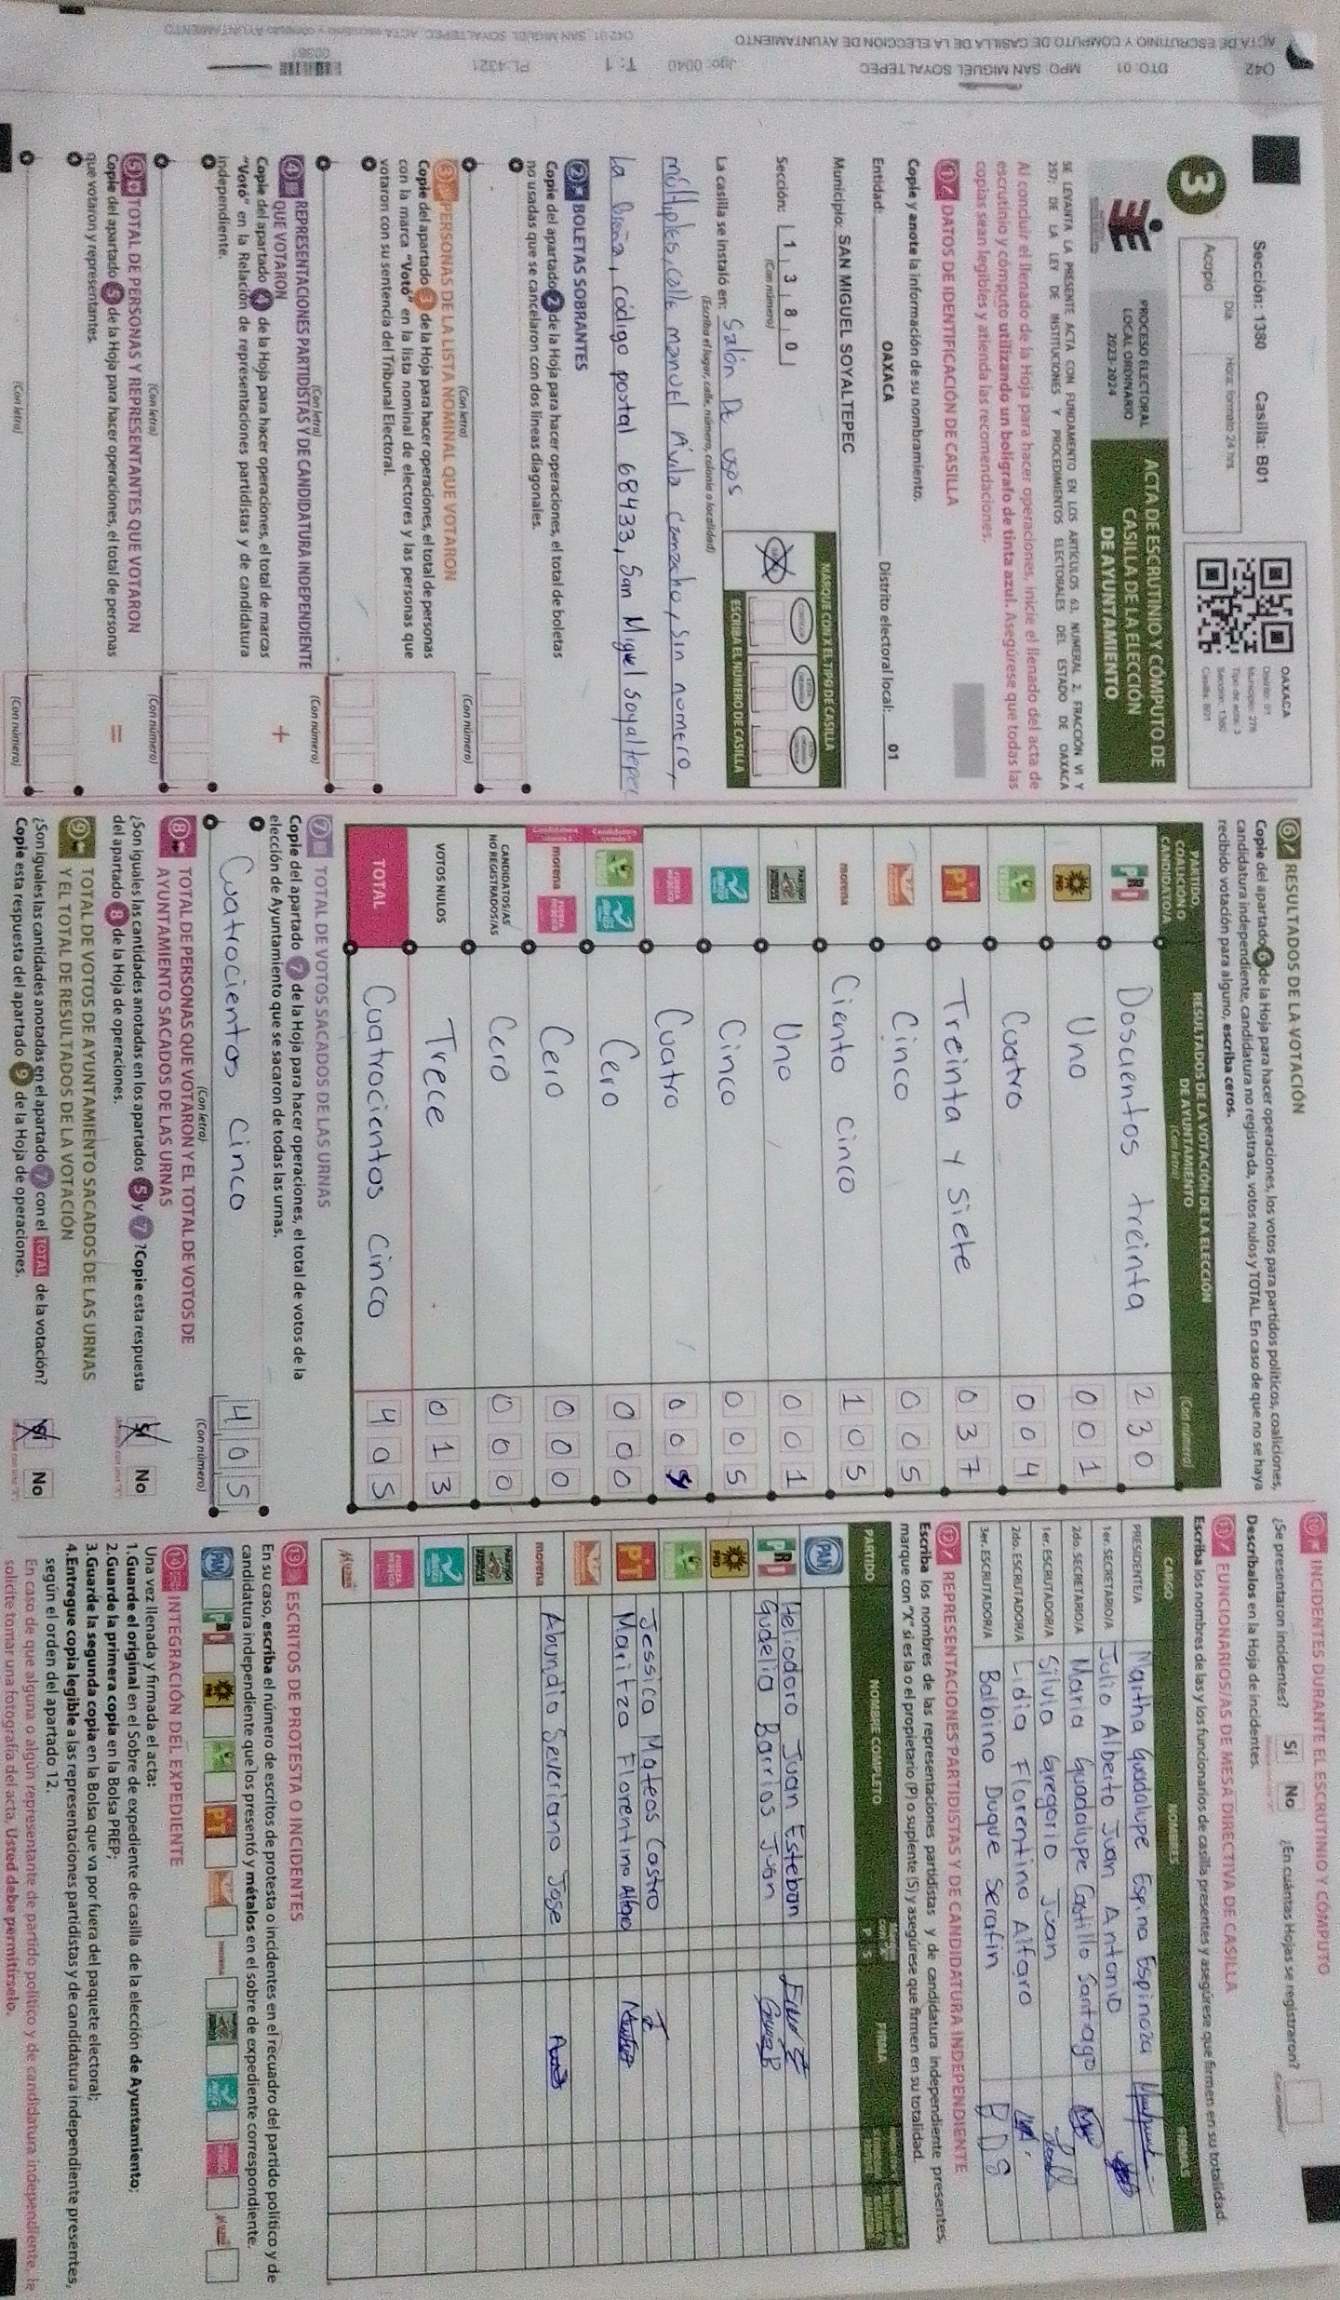 042 DTO: 01 MPO: SAN MIGUEL SOYALTEPEC Jgo: 0040 T: 1 PL:4321
ACTA DE ESCRUTINIO Y CÓMPUTO DE CASILLA DE LA ELECCIÓN DE AYUNTAMIENTO
Sección: 1380 Casilla: B01
3
Acopio
Día
Hora: formato 24 hrs
OAXACA
Distrito: 01
Municipio: 278
Tipo de acta: 3
Sección: 1380
Casilla: B01
PROCESO ELECTORAL
LOCAL ORDINARIO
2023-2024
ACTA DE ESCRUTINIO Y CÓMPUTO DE
CASILLA DE LA ELECCIÓN
DE AYUNTAMIENTO
SE LEVANTA LA PRESENTE ACTA CON FUNDAMENTO EN LOS ARTÍCULOS 63, NUMERAL 2, FRACCIÓN VI Y
257; DE LA LEY DE INSTITUCIONES Y PROCEDIMIENTOS ELECTORALES DEL ESTADO DE OAXACA
Al concluir el llenado de la Hoja para hacer operaciones, inicie el llenado del acta de
escrutinio y cómputo utilizando un bolígrafo de tinta azul. Asegúrese que todas las
copias sean legibles y atienda las recomendaciones.
1 DATOS DE IDENTIFICACIÓN DE CASILLA
Copie y anote la información de su nombramiento.
Entidad: OAXACA Distrito electoral local: 01
Municipio: SAN MIGUEL SOYALTEPEC
Sección: 1 3 8 0
(Con número)
MARQUE CON X EL TIPO DE CASILLA
ESCRIBA EL NÚMERO DE CASILLA
La casilla se instaló en: Salón De usos
(Escriba el lugar, calle, número, colonia o localidad)
múltiples, calle manuel Ávila Camacho, sin número,
la Breña, código postal 68433, San Miguel soyaltepec
2 BOLETAS SOBRANTES
Copie del apartado 2 de la Hoja para hacer operaciones, el total de boletas
no usadas que se cancelaron con dos líneas diagonales.
(Con letra) (Con número)
3 PERSONAS DE LA LISTA NOMINAL QUE VOTARON
Copie del apartado 3 de la Hoja para hacer operaciones, el total de personas
con la marca "Votó" en la lista nominal de electores y las personas que
votaron con su sentencia del Tribunal Electoral.
(Con letra) (Con número)
4 REPRESENTACIONES PARTIDISTAS Y DE CANDIDATURA INDEPENDIENTE
QUE VOTARON
Copie del apartado 4 de la Hoja para hacer operaciones, el total de marcas
"Votó" en la Relación de representaciones partidistas y de candidatura
independiente.
+
(Con letra) (Con número)
5 TOTAL DE PERSONAS Y REPRESENTANTES QUE VOTARON
Copie del apartado 5 de la Hoja para hacer operaciones, el total de personas
que votaron y representantes.
=
(Con letra) (Con número)
6 RESULTADOS DE LA VOTACIÓN
Copie del apartado 6 de la Hoja para hacer operaciones, los votos para partidos políticos, coaliciones,
candidatura independiente, candidatura no registrada, votos nulos y TOTAL. En caso de que no se haya
recibido votación para alguno, escriba ceros.
PARTIDO, COALICIÓN O CANDIDATO/A RESULTADOS DE LA VOTACIÓN DE LA ELECCIÓN DE AYUNTAMIENTO (Con letra) (Con número)
PRI Doscientos treinta 2 3 0
PRD Uno 0 0 1
VERDE Cuatro 0 0 4
PT Treinta y siete 0 3 7
Cinco 0 0 5
morena Ciento cinco 1 0 5
Uno 0 0 1
Cinco 0 0 5
FUERZA MÉXICO Cuatro 0 0 4
Cero 0 0 0
morena FUERZA MÉXICO Cero 0 0 0
CANDIDATOS/AS NO REGISTRADOS/AS Cero 0 0 0
VOTOS NULOS Trece 0 1 3
TOTAL Cuatrocientos cinco 4 0 5
7 TOTAL DE VOTOS SACADOS DE LAS URNAS
Copie del apartado 7 de la Hoja para hacer operaciones, el total de votos de la
elección de Ayuntamiento que se sacaron de todas las urnas.
Cuatrocientos cinco 4 0 5
(Con letra) (Con número)
8 TOTAL DE PERSONAS QUE VOTARON Y EL TOTAL DE VOTOS DE
AYUNTAMIENTO SACADOS DE LAS URNAS
¿Son iguales las cantidades anotadas en los apartados 5 y 7? Copie esta respuesta
del apartado 8 de la Hoja de operaciones.
Sí No
9 TOTAL DE VOTOS DE AYUNTAMIENTO SACADOS DE LAS URNAS
Y EL TOTAL DE RESULTADOS DE LA VOTACIÓN
¿Son iguales las cantidades anotadas en el apartado 7 con el TOTAL de la votación?
Copie esta respuesta del apartado 9 de la Hoja de operaciones.
Sí No
10 INCIDENTES DURANTE EL ESCRUTINIO Y CÓMPUTO
¿Se presentaron incidentes? Sí No ¿En cuántas Hojas se registraron?
Descríbalos en la Hoja de incidentes.
11 FUNCIONARIOS/AS DE MESA DIRECTIVA DE CASILLA
Escriba los nombres de las y los funcionarios de casilla presentes y asegúrese que firmen en su totalidad.
CARGO NOMBRES FIRMAS
PRESIDENTE/A Martha Guadalupe Espino Espinoza
1er. SECRETARIO/A Julio Alberto Juan Antonio
2do. SECRETARIO/A María Guadalupe Castillo Santiago
1er. ESCRUTADOR/A Silvia Gregorio Juan
2do. ESCRUTADOR/A Lidia Florentino Alfaro
3er. ESCRUTADOR/A Balbino Duque Serafin B D S
12 REPRESENTACIONES PARTIDISTAS Y DE CANDIDATURA INDEPENDIENTE
Escriba los nombres de las representaciones partidistas y de candidatura independiente presentes,
marque con "X" si es la o el propietario (P) o suplente (S) y asegúrese que firmen en su totalidad.
PARTIDO NOMBRE COMPLETO FIRMA
PAN
PRI Heliodoro Juan Esteban
Gudelia Barrios Juan
PRD
PT Jessica Mateos Castro
Maritza Florentino Alfaro
morena Abundio Severiano Jose
FUERZA MÉXICO
13 ESCRITOS DE PROTESTA O INCIDENTES
En su caso, escriba el número de escritos de protesta o incidentes en el recuadro del partido político y de
candidatura independiente que los presentó y métalos en el sobre de expediente correspondiente.
PAN PRI PRD PT
14 INTEGRACIÓN DEL EXPEDIENTE
Una vez llenada y firmada el acta:
1.Guarde el original en el Sobre de expediente de casilla de la elección de Ayuntamiento;
2.Guarde la primera copia en la Bolsa PREP;
3.Guarde la segunda copia en la Bolsa que va por fuera del paquete electoral;
4.Entregue copia legible a las representaciones partidistas y de candidatura independiente presentes,
según el orden del apartado 12.
En caso de que alguna o algún representante de partido político y de candidatura independiente, le
solicite tomar una fotografía del acta, Usted debe permitírselo.